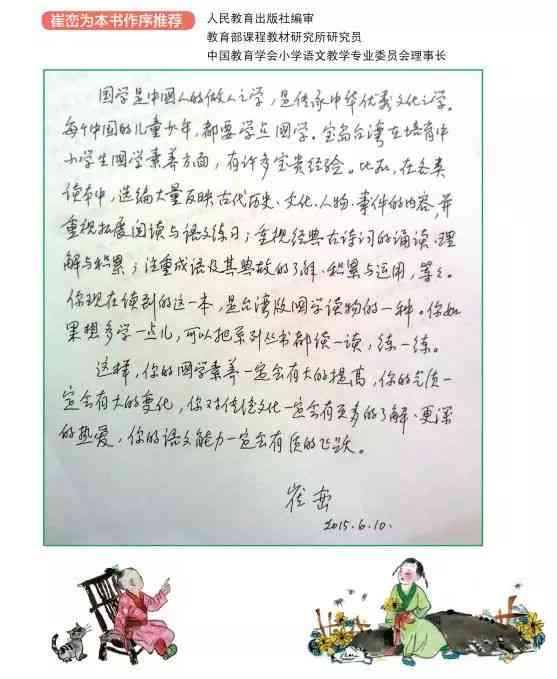 崔峦为本书作序推荐
人民教育出版社编审
教育部课程教材研究所研究员
中国教育学会小学语文教学专业委员会理事长
国学是中国人的做人之学，是传承中华优秀文化之学。
每个中国的儿童少年，都要学点国学。宝岛台湾在培育中
小学生国学素养方面，有许多宝贵经验。比如，在各类
读本中，选编大量反映古代历史、文化、人物、事件的内容，并
重视拓展阅读与语文练习；重视经典古诗词的诵读、理
解与积累；注重成语及其典故的了解、积累与运用，等等。
你现在读到的这一本，是台湾版国学读物的一种。你如
果想多学一点儿，可以把系列丛书都读一读，练一练。
这样，你的国学素养一定会有大的提高，你的气质一
定会有大的变化，你对传统文化一定会有更多的了解、更深
的热爱，你的语文能力一定会有质的飞跃。
崔峦
2015.6.10.